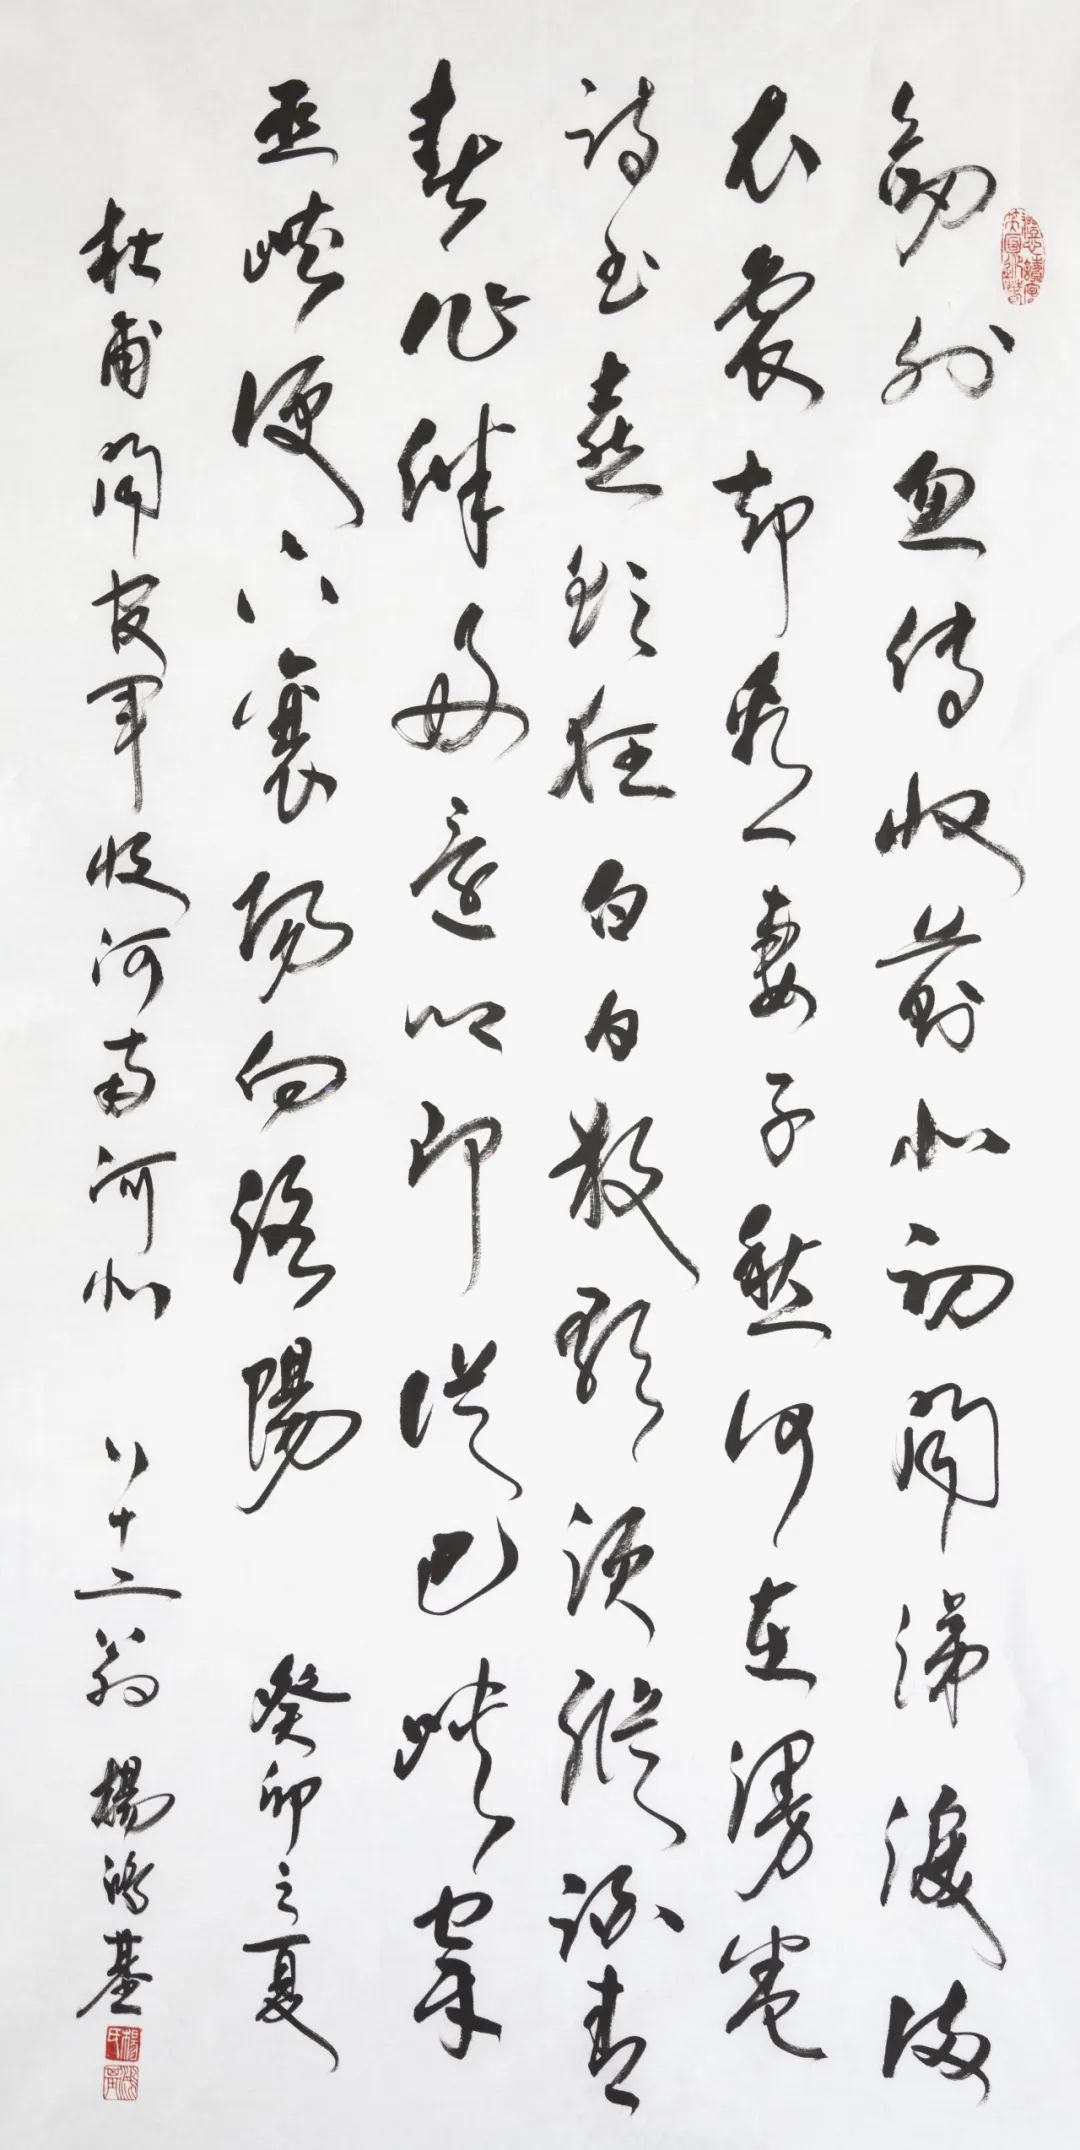 劍外忽傳收薊北初聞涕淚滿
衣裳却看妻子愁何在漫卷
詩書喜欲狂白日放歌須縱酒青
春作伴好還鄉即從巴峽穿
巫峽便下襄陽向洛陽 癸卯之夏
杜甫聞官軍收河南河北 八十二翁 楊鴻基